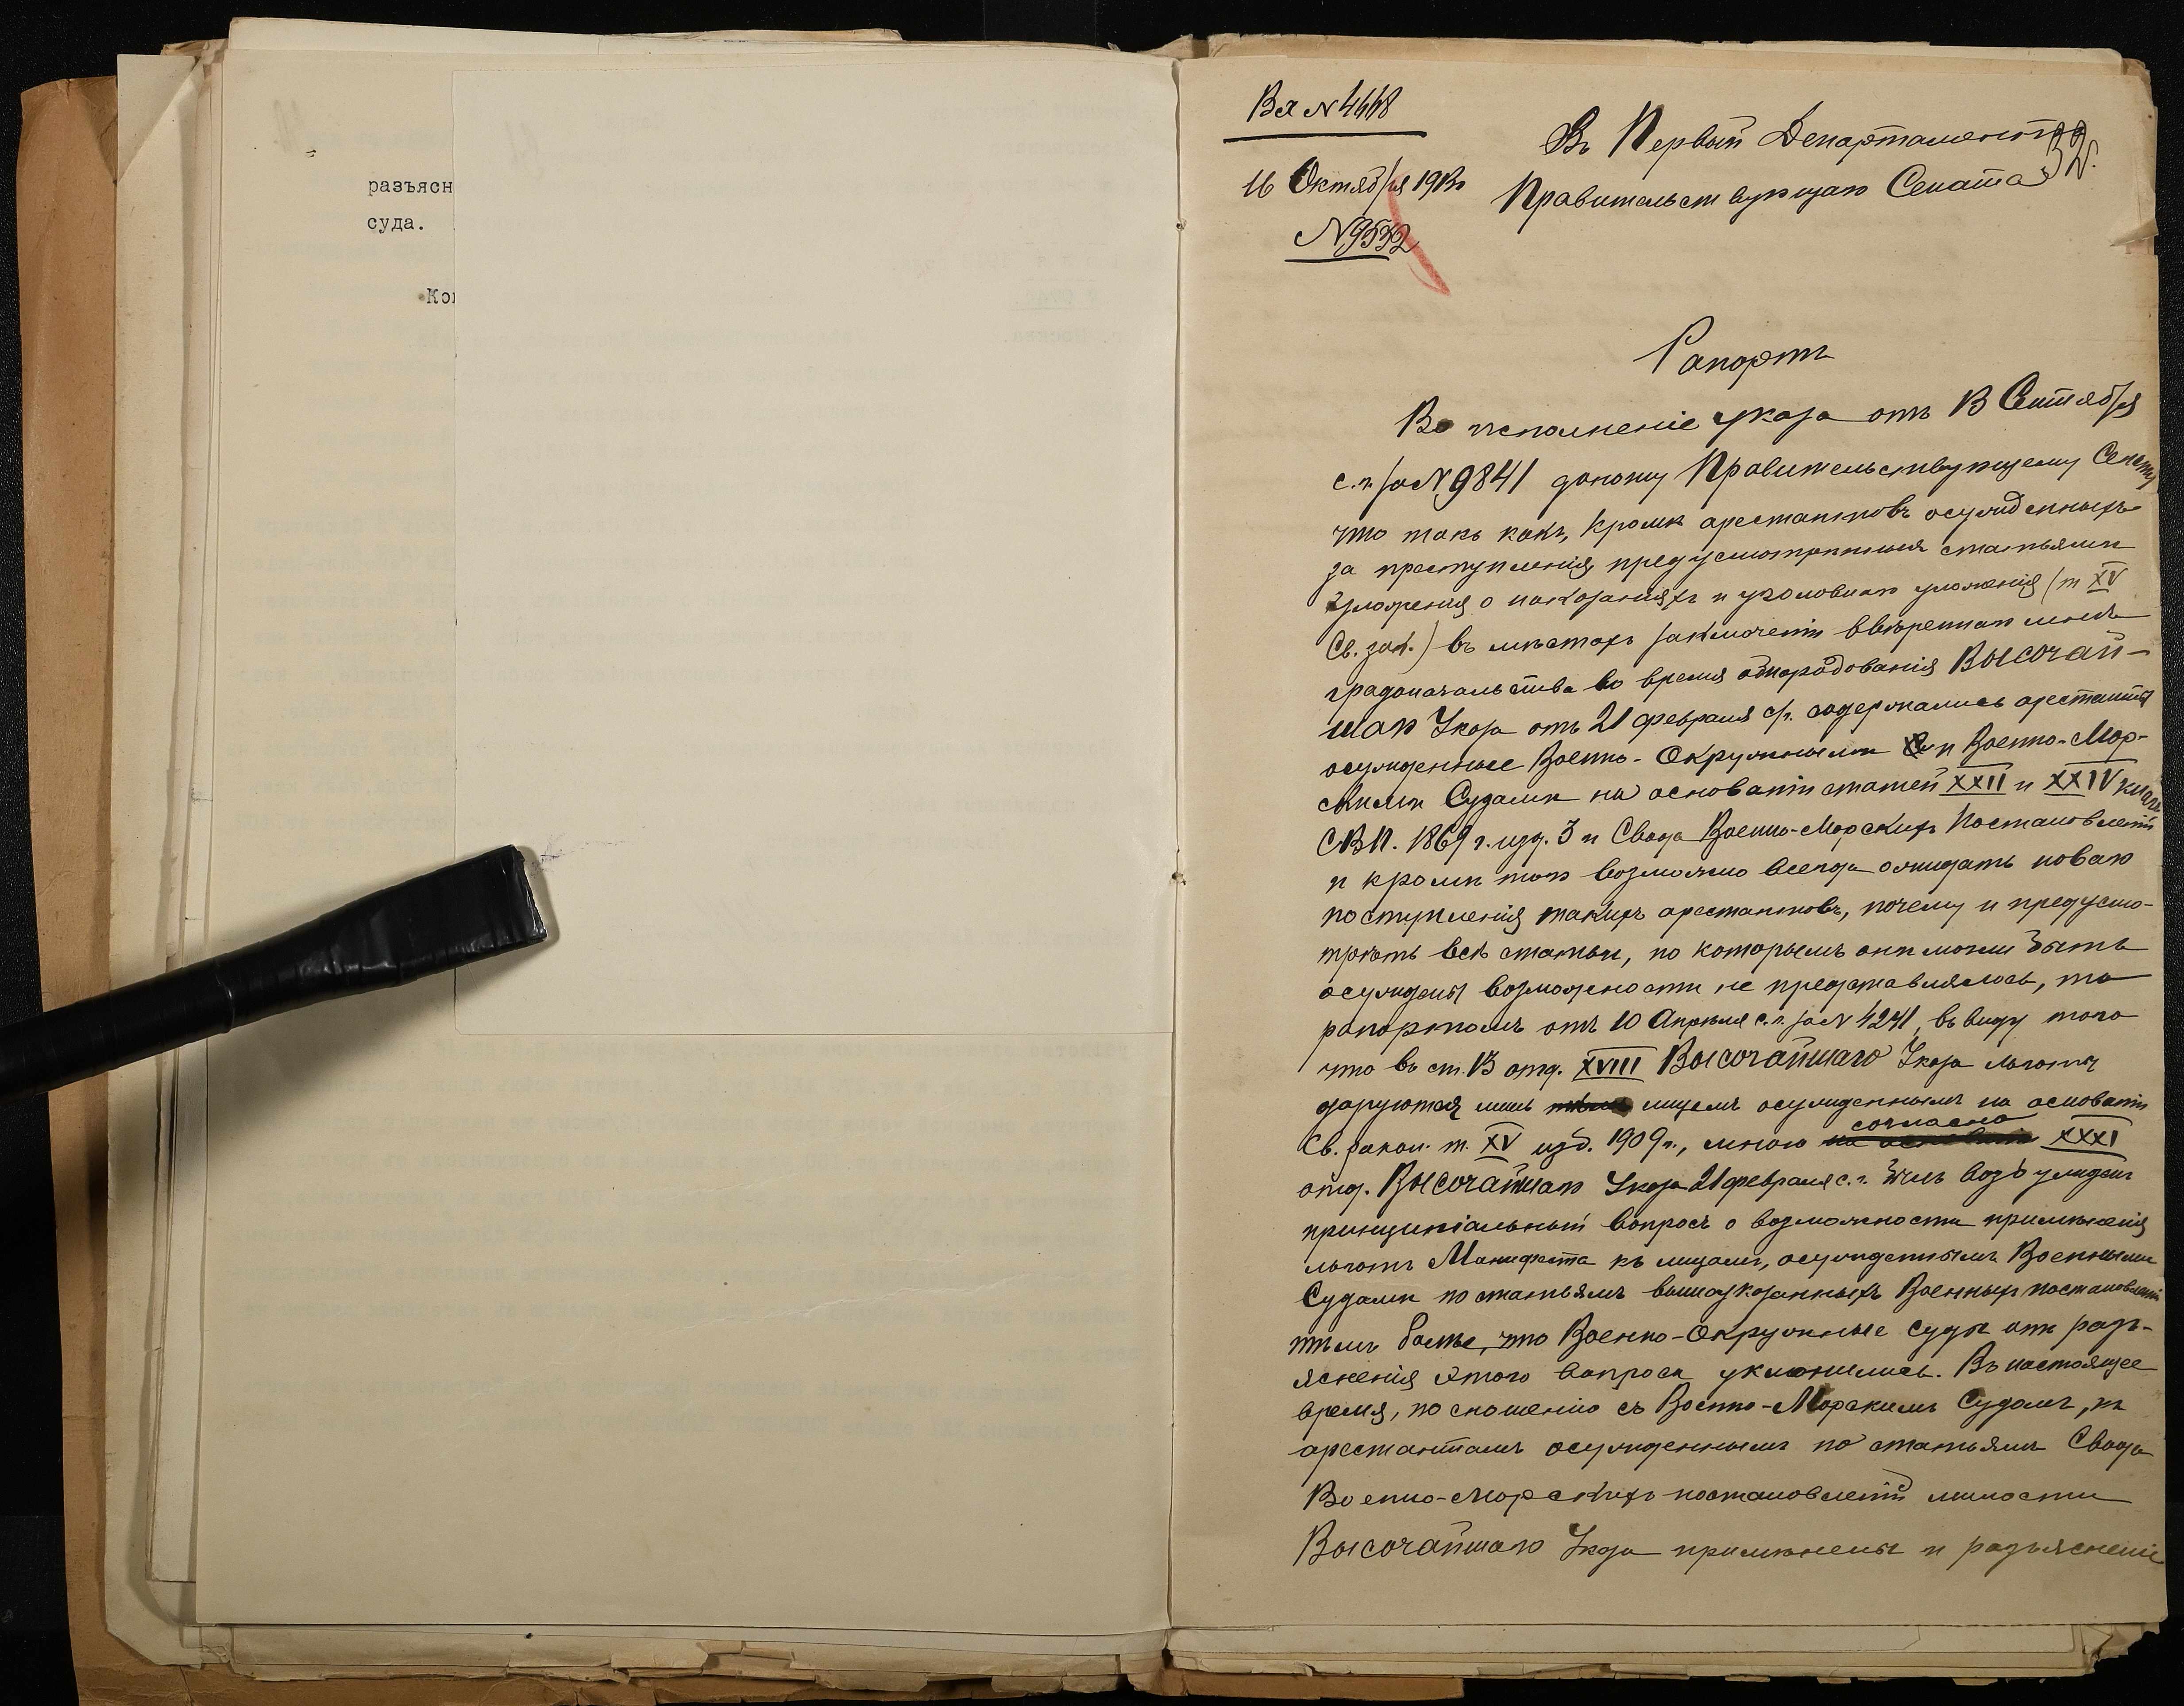 разъясн
суда.
Ко
Вх №4668
16 Октября 1913 г
№9532
Въ Первый Департаментъ
Правительствующаго Сената
32.
Рапортъ
Во исполненіе указа отъ 13 Сентября
с.г. за №9841 доношу Правительствующему Сенату
что такъ какъ, кромѣ арестантовъ осужденныхъ
за преступленія, предусмотрѣнныя статьями
уложенія о наказаніяхъ и уголовнаго уложенія (т XV
Св. зак.) въ мѣстахъ заключенія ввѣреннаго мнѣ
градоначальства во время обнародованія ВЫСОЧАЙ-
шаго Указа отъ 21 февраля с/г. содержались арестанты
осужденные Военно-Окружными и Военно-Мор-
скими Судами на основаніи статей XXII и XXIV книги
С.В.П. 1869 г. изд. 3 и Свода Военно-Морскихъ Постановленій
и кромѣ того возможно всегда ожидать новаго
поступленія такихъ арестантовъ, почему и предусмо-
трѣть всѣ статьи, по которымъ они могли быть
осуждены возможности не представлялось, то
рапортомъ отъ 10 Апрѣля с.г. за № 4241, въ виду того
что въ ст. 13 отд. XVIII ВЫСОЧАЙШАГО Указа льготы
даруются лишь лицамъ осужденнымъ на основаніи
Св. закон. т. XV изд. 1909 г., мною на основаніи согласно XXXI
отд. ВЫСОЧАЙШАГО Указа 21 февраля с.г. былъ возбужденъ
принципіальный вопросъ о возможности примѣненія
льготъ Манифеста къ лицамъ, осужденнымъ Военными
Судами по статьямъ вышеуказанныхъ Военныхъ постановленій
тѣмъ болѣе, что Военно-Окружные суды отъ разъ-
ясненія этого вопроса уклонились. Въ настоящее
время, по сношенію съ Военно-Морскимъ Судомъ, къ
арестантамъ осужденнымъ по статьямъ Свода
Военно-Морскихъ постановленій милости
ВЫСОЧАЙШАГО Указа примѣнены и разъясненіе